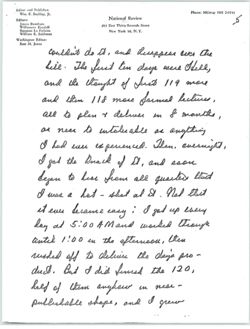 Editor and Publisher
Wm. F. Buckley, Jr.
Editors:
James Burnham
Willmoore Kendall
Suzanne La Follette
William S. Schlamm
Washington Editor:
Sam M. Jones
National Review
211 East Thirty-Seventh Street
New York 16, N.Y.
Phone: MUrray Hill
5
couldn't do it, and disappear over the
hill. The first ten days were Hell,
and the thought of first 119 more
and then 118 more formal lectures,
all to plan & deliver in 8 months,
as near to intolerable as anything
I had ever experienced. Then, overnight,
I got the knack of it, and soon
began to hear from all quarters that
I was a hot-shot at it. Not that
it ever became easy: I got up every
day at 5:00 AM and worked through
until 1:00 in the afternoon, then
rushed off to deliver the day's pro-
duct. But I did finish the 120,
half of them anyhow in near-
publishable shape, and I grew